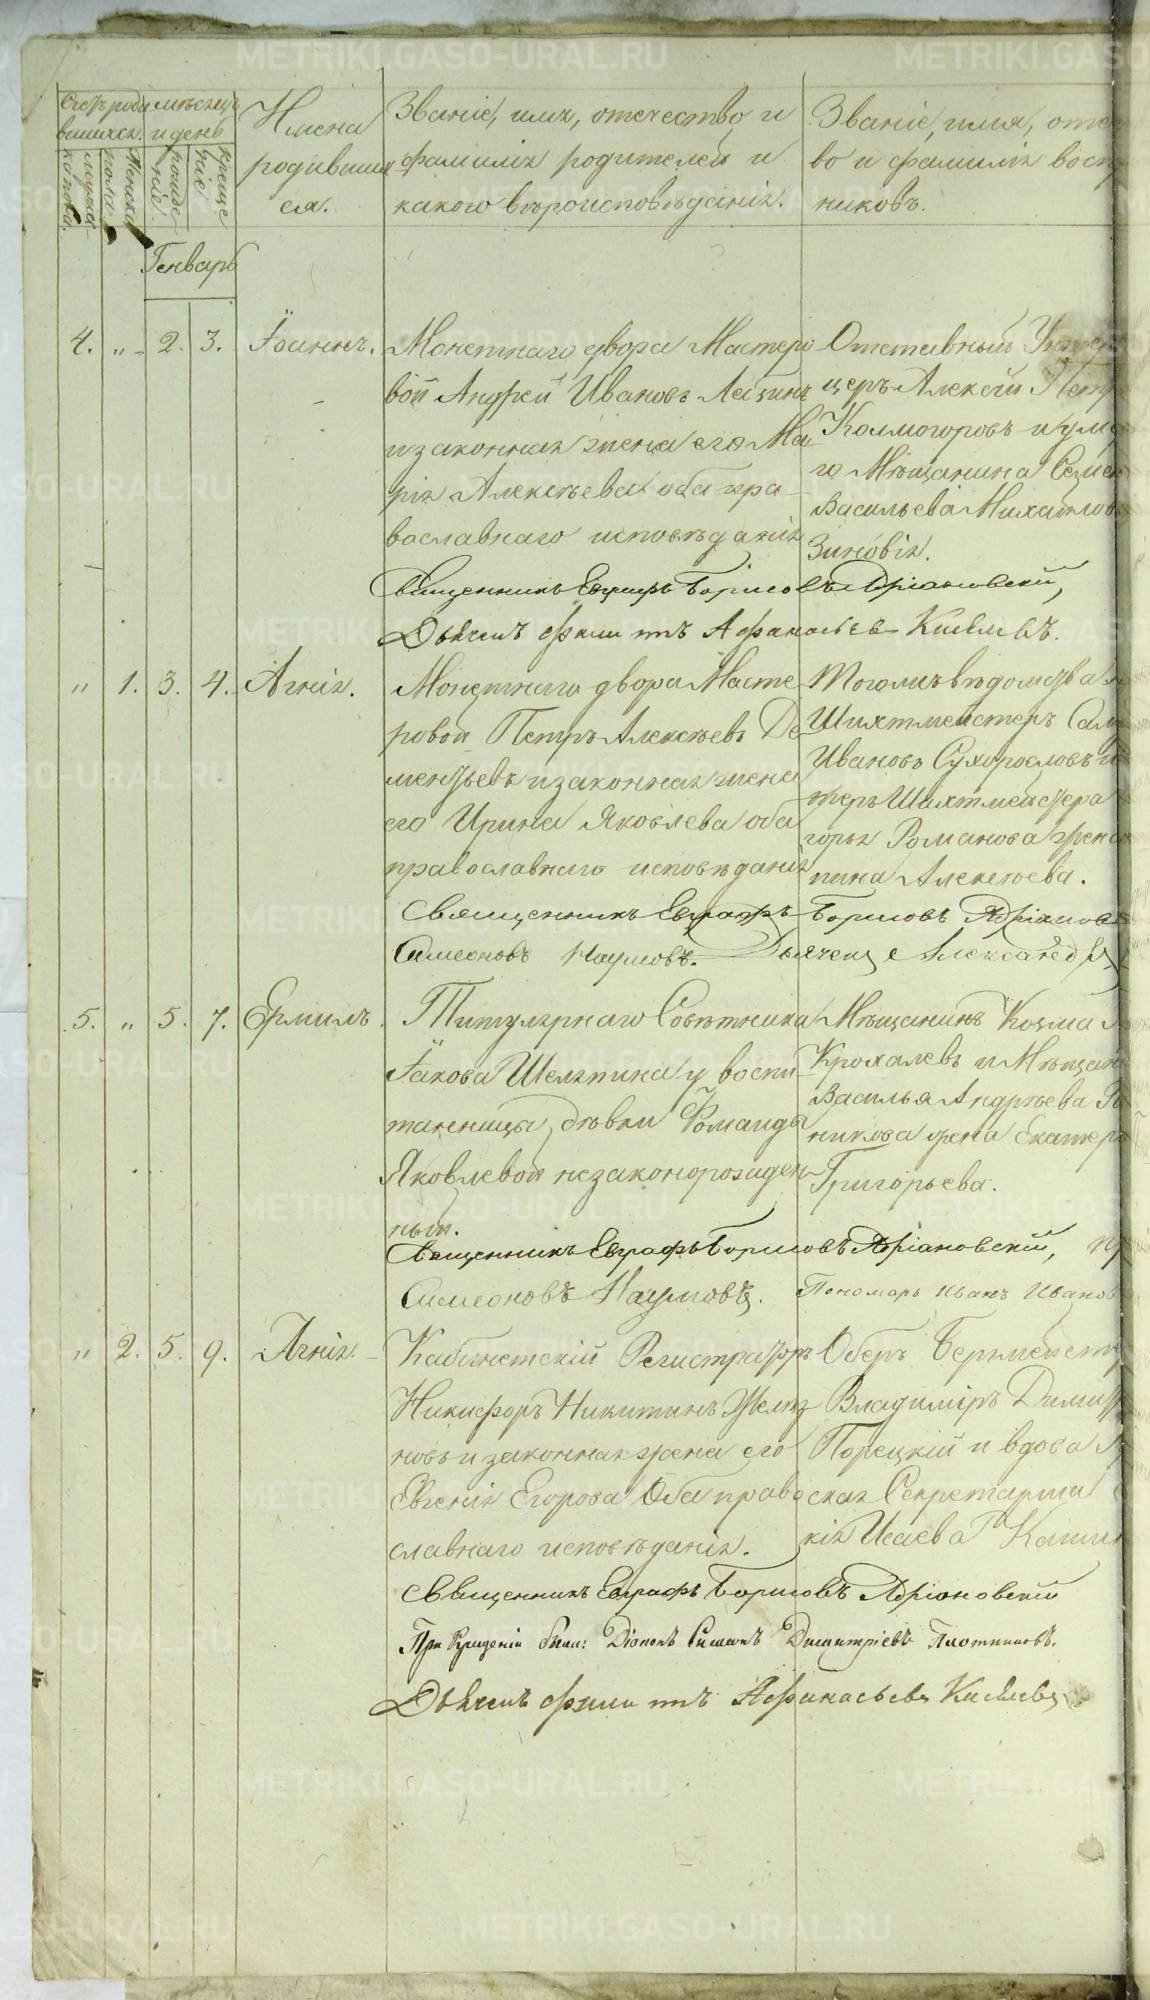 Счетъ роди
вшихся.
мѣсяцъ
и день
мужеска
пола
женска
рожде
нія
креще
нія
Имена
родивших
ся.
Званіе, имя, отечество и
фамилія родителей и
какого вѣроисповѣданія.
Званіе, имя, отече
во и фамилія восп
никовъ.
Генварь
4. „ 2. 3. Іоаннъ.
Монетнаго двора Мастеро
вой Андрей Ивановъ
и законная жена его Ма
рія Алексѣева оба пра
вославнаго исповѣданія
Отставный Унтеръ
церъ Алексѣй Петр
Колмогоровъ и умер
го Мѣщанина Семен
Васильева Михайлов
Зиновія.
Священникъ Евграфъ Борисовъ Адріановскій,
Дьячекъ Филиппъ Афанасьевъ Киселевъ.
„ 1. 3. 4. Агнія.
Монетнаго двора Масте
ровой Петръ Алексѣевъ Де
ментьевъ и законная жена
его Ирина Яковлева оба
православнаго исповѣданія
Тогожъ вѣдомства
Шихтмейстеръ Сам
Ивановъ Сухорословъ и
теръ Шихтмейстера
горья Романова жена
пина Алексѣева.
Священникъ Евграфъ Борисовъ Адріанов
Симеоновъ Наумовъ. Дьячекъ Александръ
5. „ 5. 7. Ермилъ.
Титулярнаго Совѣтника
Іакова Шеляпина у воспи
танницы, дѣвки Фомаиды
Яковлевой незаконорожден
ный.
Мѣщанинъ Козма
Крохалевъ и Мѣщан
Василья Андрѣева
никова жена Екатер
Григорьева.
Священникъ Евграфъ Борисовъ Адріановскій, пр
Симеоновъ Наумовъ. Пономарь Иванъ Иванов
„ 2. 5. 9. Агнія.
Кабинетскій Регистраторъ
Никифоръ Никитинъ
новъ и законная жена его
Евгенія Егорова Оба право
славнаго исповѣданія.
Оберъ Бергмейстер
Владиміръ Димитр
Порецкій и вдова
ская Секретарша
кія Исаева
Священникъ Евграфъ Борисовъ Адріановскій
При Крещеніи были: Діаконъ Симеонъ Димитріевъ Плотниковъ.
Дьячекъ Филиппъ Афанасьевъ Киселевъ
METRIKI.GASO-URAL.RU